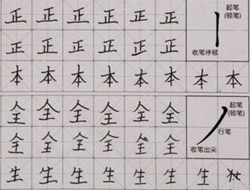 正 正 正 正 正 正 起笔
(顿笔)
正 正 正 正 正 正
收笔停顿
本 本 本 本 本 本 本 本
全 全 全 全 全 全 起笔
(顿笔)
行笔
全 全 全 全 全 全
收笔出尖
生 生 生 生 生 生 生